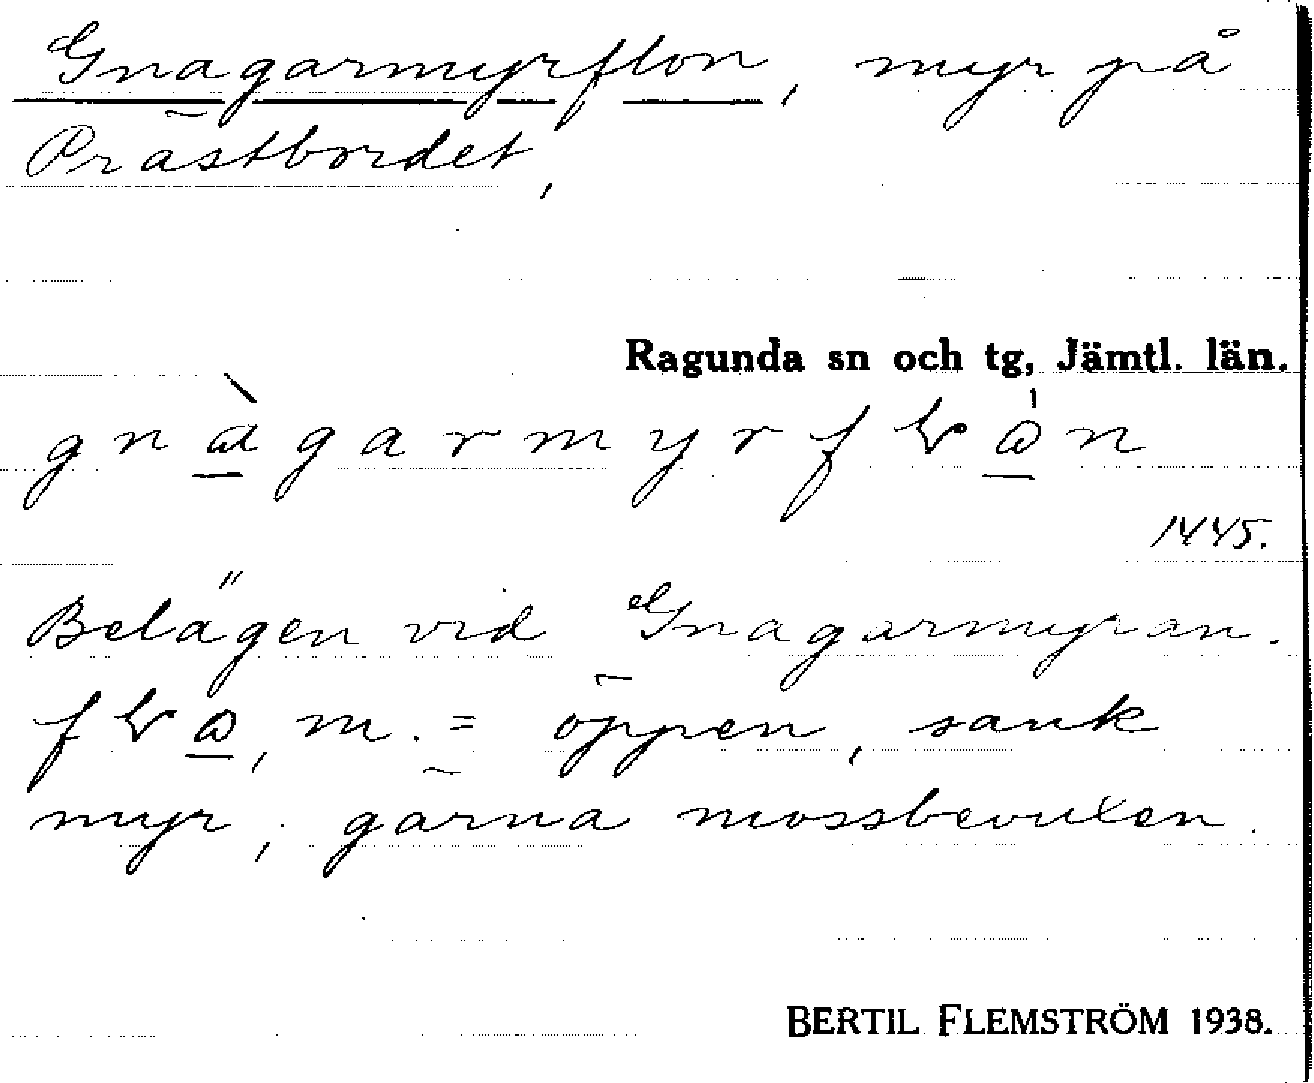 Gnagarmyrflon, myr på
Prästbordet,
Ragunda sn och tg, Jämtl. län.
1445.
Belägen vid Gnagarmyran.
m. = öppen, sank
myr, gärna mossbevuxen.
BERTIL FLEMSTRÖM 1938.